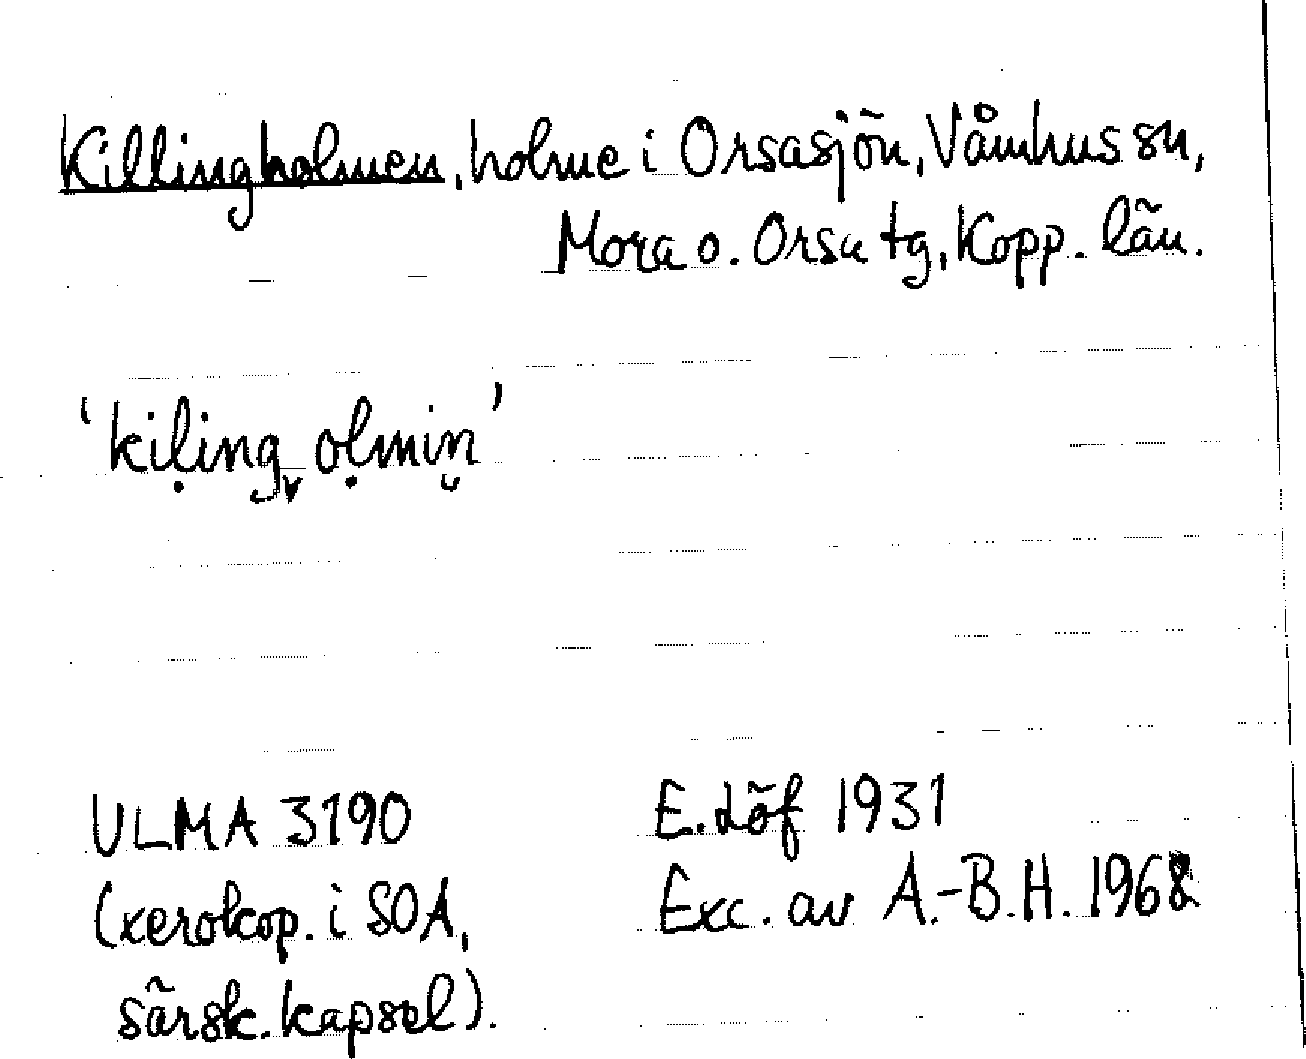 Killingholmen, holme i Orsasjön, Våmhus sn,
Mora o. Orsa tg, Kopp. län.
‘kiḷing˯oḷmin̮’
ULMA 3190
(xerokop. i SOA,
särsk. kapsel).
E. Löf 1931
Exc. av A.-B.H. 1968